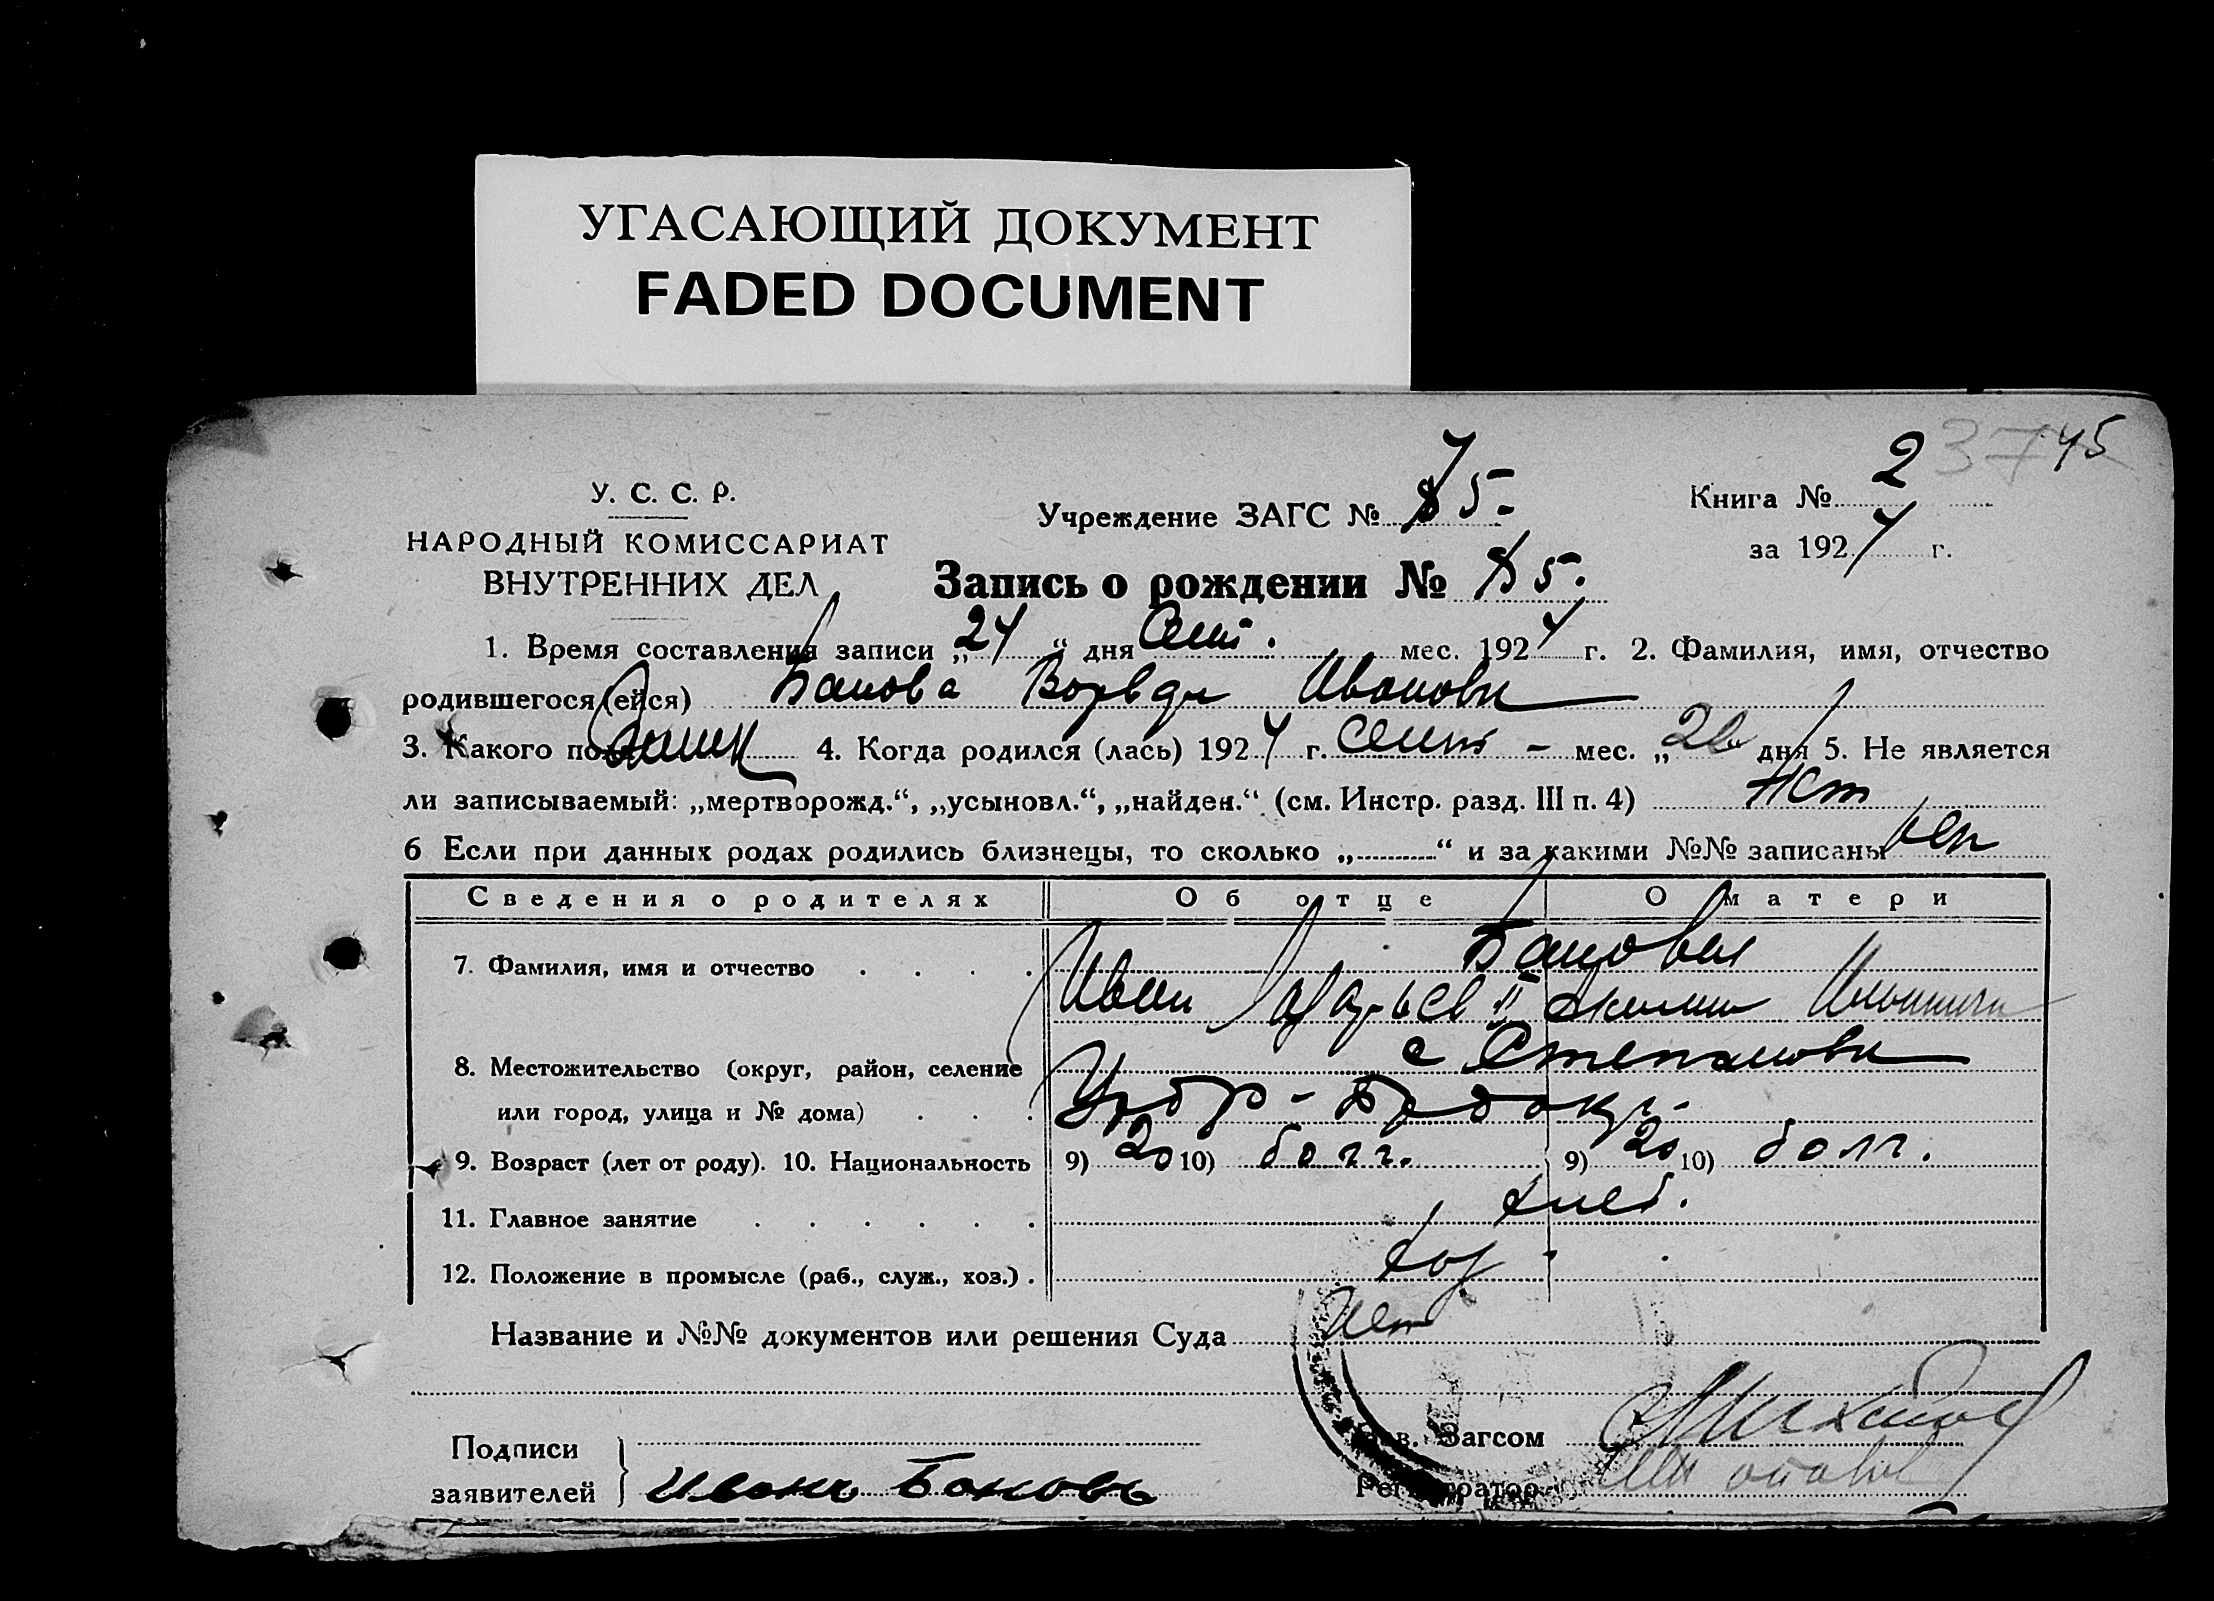 УГАСАЮЩИЙ ДОКУМЕНТ
FADED DOCUMENT
3745
У. С. С. Р.
НАРОДНЫЙ КОМИССАРИАТ
ВНУТРЕННИХ ДЕЛ
Учреждение ЗАГС №
Книга № 2
за 1924 г.
Запись о рождении №
1. Время составления записи „24“ дня Сент. мес. 1924 г. 2. Фамилия, имя, отчество
родившегося (ейся) Банова Иванови
3. Какого по 4. Когда родился (лась) 1924 г. сент - мес. „ дня 5. Не является
ли записываемый: „мертворожд.“, „усыновл.“, „найден.“ (см. Инстр. разд. III п. 4) Нет
6 Если при данных родах родились близнецы, то сколько „“ и за какими №№ записаны нет
Сведения о родителях Об отце О матери
7. Фамилия, имя и отчество Бановы
Иван
8. Местожительство (округ, район, селение с Степановки
или город, улица и № дома)
9. Возраст (лет от роду). 10. Национальность 9) 20 10) болг. 9) 20 10) болг.
11. Главное занятие хлеб.
12. Положение в промысле (раб., служ., хоз.) хоз
Название и №№ документов или решения Суда Нет
Подписи
заявителей
Иванъ Бановъ
Зав. Загсом
Регистратор